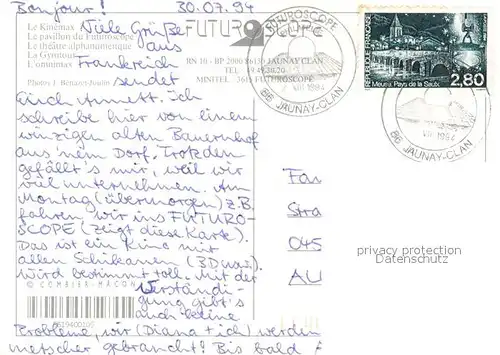 Bonjour! 30.07.94
Viele Grüße
aus
Frankreich
sendet
Euch Annett. Ich
schreibe hier von einem
winzigen alten Bauernhof
aus 'nem Dorf. Trotzdem
gefällt's mir, weil wir
viel unternehmen. Am
Montag (übermorgen) z.B.
fahren wir ins FUTURO-
SCOPE (zeigt diese Karte).
Das ist ein Kino mit
allen Schikanen (3D usw.).
Wird bestimmt toll. Mit der
Verständi-
gung gibt's
auch keine
Probleme, wir (Diana + ich) werden
metscher gebraucht! Bis bald
Le Kinémax
Le pavillon du Futuroscope
Le théâtre alphanumérique
La Gyrotour
L'omnimax
Photos J. Bénazet-Joulin
FUTUROSCOPE
RN 10 - BP 2000 86130 JAUNAY CLAN
TEL 49.49.30.20
MINITEL 3615 FUTUROSCOPE
© COMBIER MACON
FUTUROSCOPE
VIII 1994
86 JAUNAY-CLAN
RÉPUBLIQUE FRANÇAISE
Meuse Pays de la Saulx
2,80
VIII 1994
86 JAUNAY-CLAN
Fam
Stra
045
AU
privacy protection
Datenschutz